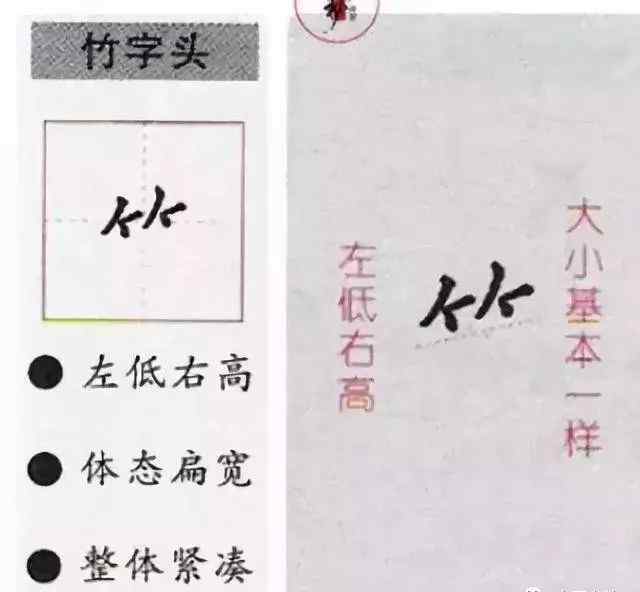 竹字头
左低右高
体态扁宽
整体紧凑
左低右高
大小基本一样